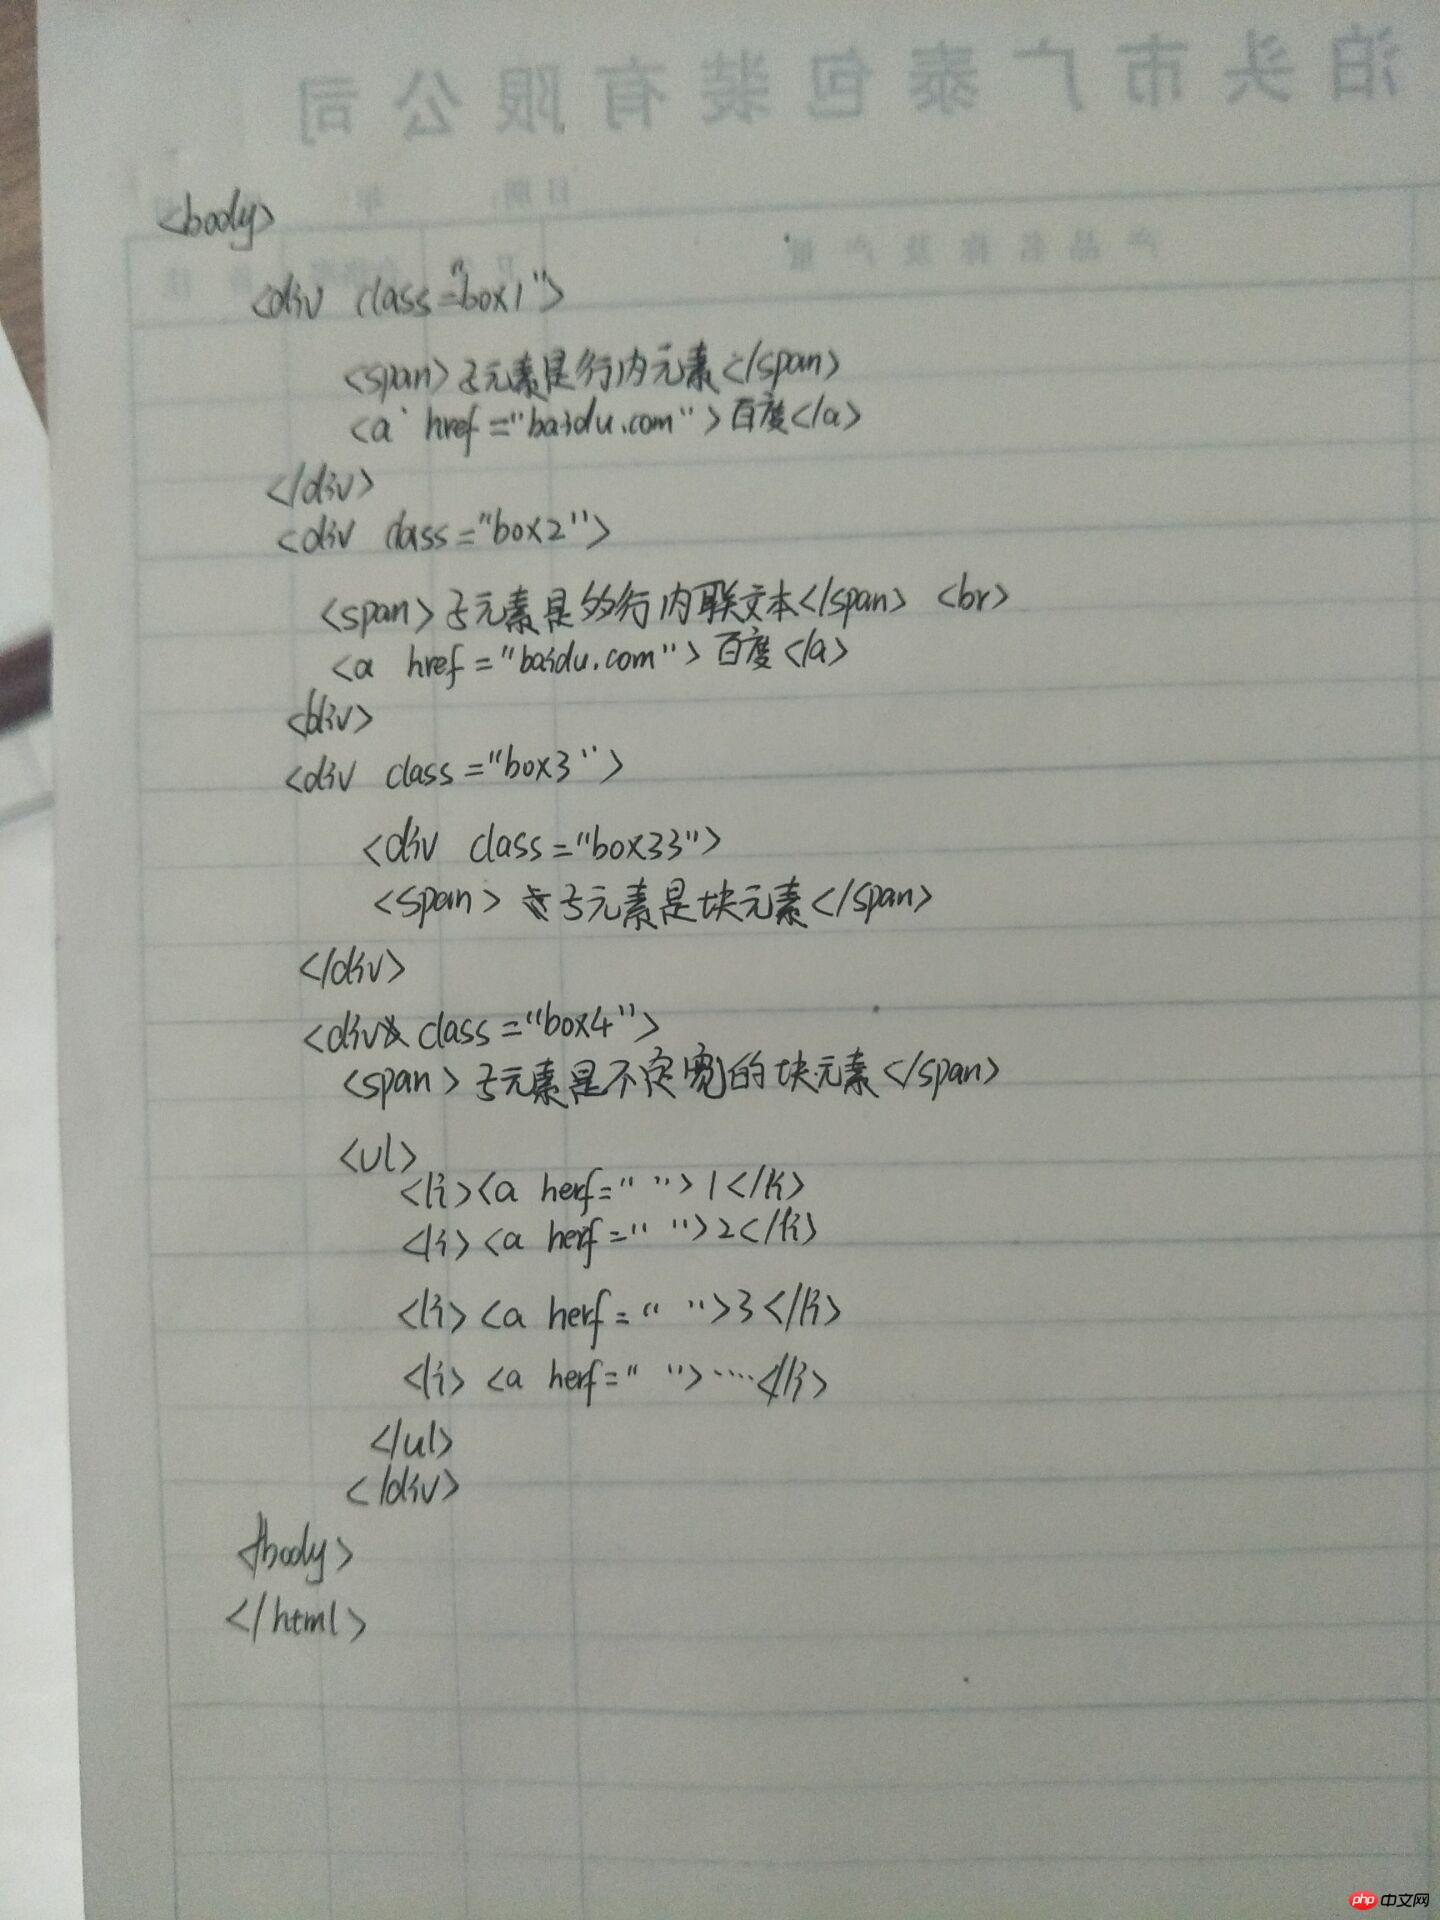 泊头市广泰包装有限公司
日期: 年
产品名称及产
<body>
<div class="box1">
<span>子元素是行内元素</span>
<a href="baidu.com">百度</a>
</div>
<div class="box2">
<span>子元素是多行内联文本</span> <br>
<a href="baidu.com">百度</a>
<div>
<div class="box3">
<div class="box33">
<span>子元素是块元素</span>
</div>
<div class="box4">
<span>子元素是不定宽的块元素</span>
<ul>
<li><a herf=" ">1</li>
<li><a herf=" ">2</li>
<li><a herf=" ">3</li>
<li><a herf=" ">....</li>
</ul>
</div>
</body>
</html>
php中文网